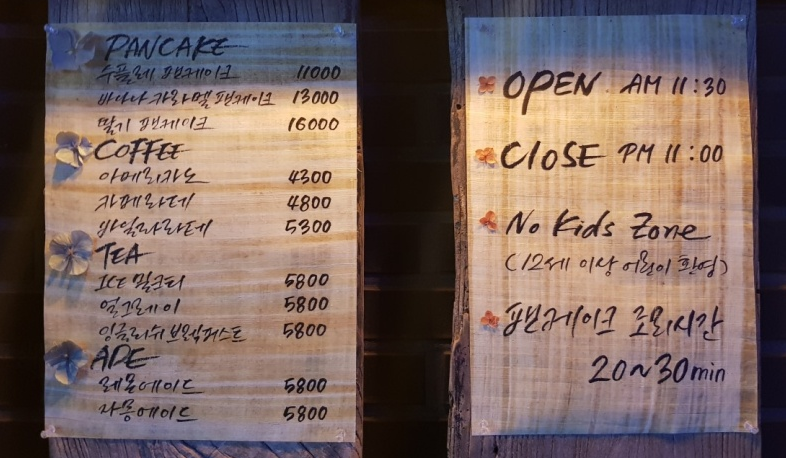 PANCAKE
수플레 팬케이크 11000
바나나 카라멜 팬케이크 13000
딸기 팬케이크 16000
COFFEE
아메리카노 4300
카페라떼 4800
바닐라라떼 5300
TEA
ICE 밀크티 5800
얼그레이 5800
잉글리쉬 브렉퍼스트 5800
ADE
레몬에이드 5800
자몽에이드 5800
OPEN AM 11:30
CLOSE PM 11:00
No Kids Zone
(12세 이상 어린이 환영)
팬케이크 조리시간
20~30min